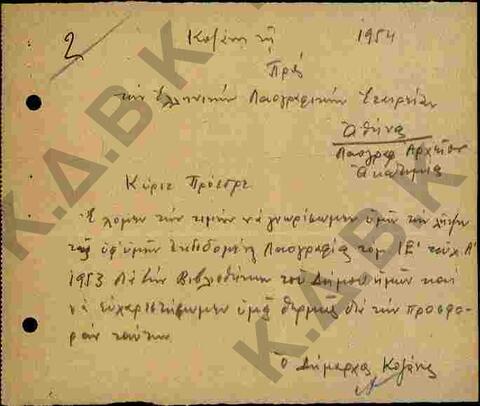 2
Κοζάνη τῇ 1954
Πρὸς
τὴν Ἑλληνικὴν Λαογραφικὴν Ἑταιρείαν
Ἀθήνας
Λαογραφ Ἀρχεῖον
Ἀκαδημίας
Κύριε Πρόεδρε
Ἔχομεν τὴν τιμὴν νὰ γνωρίσωμεν ὑμῖν τὴν λῆψιν
τῆς ὑφ' ὑμῶν ἐκδιδομένης Λαογραφίας τομ ΙΕ' τεύχ. Α'
1953 διὰ τὴν Βιβλιοθήκην τοῦ Δήμου ἡμῶν καὶ
νὰ εὐχαριστήσωμεν ὑμᾶς θερμῶς διὰ τὴν προσφο-
ρὰν ταύτην
Ὁ Δήμαρχος Κοζάνης
Κ.Δ.Β.Κ